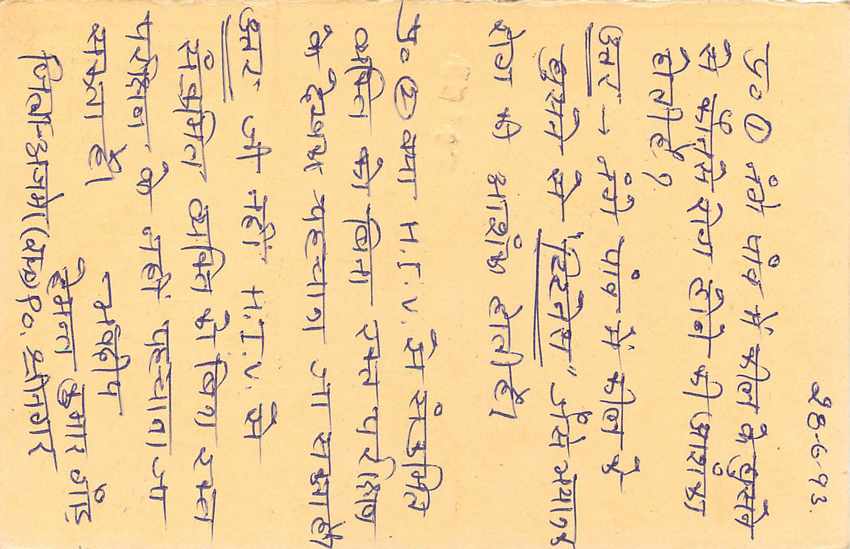 28-6-93.
प्र० ① नंगे पांव में कील के घुसने
से कौनसे रोग होने की आशंका
होती है?
उत्तर → नंगे पांव में कील के
घुसने से "टिटनेस" जैसे भयानक
रोग की आशंका होती है।
प्र० ② क्या H.I.V. से संक्रमित
व्यक्ति को बिना रक्त परीक्षण
के देखकर पहचाना जा सकता है
उत्तर जी नहीं H.I.V. से
संक्रमित व्यक्ति को बिना रक्त
परीक्षण के नहीं पहचाना जा
सकता है।
भवदीय
हेमन्त कुमार गौड़
जिला-अजमेर (राज०) P.O. श्रीनगर